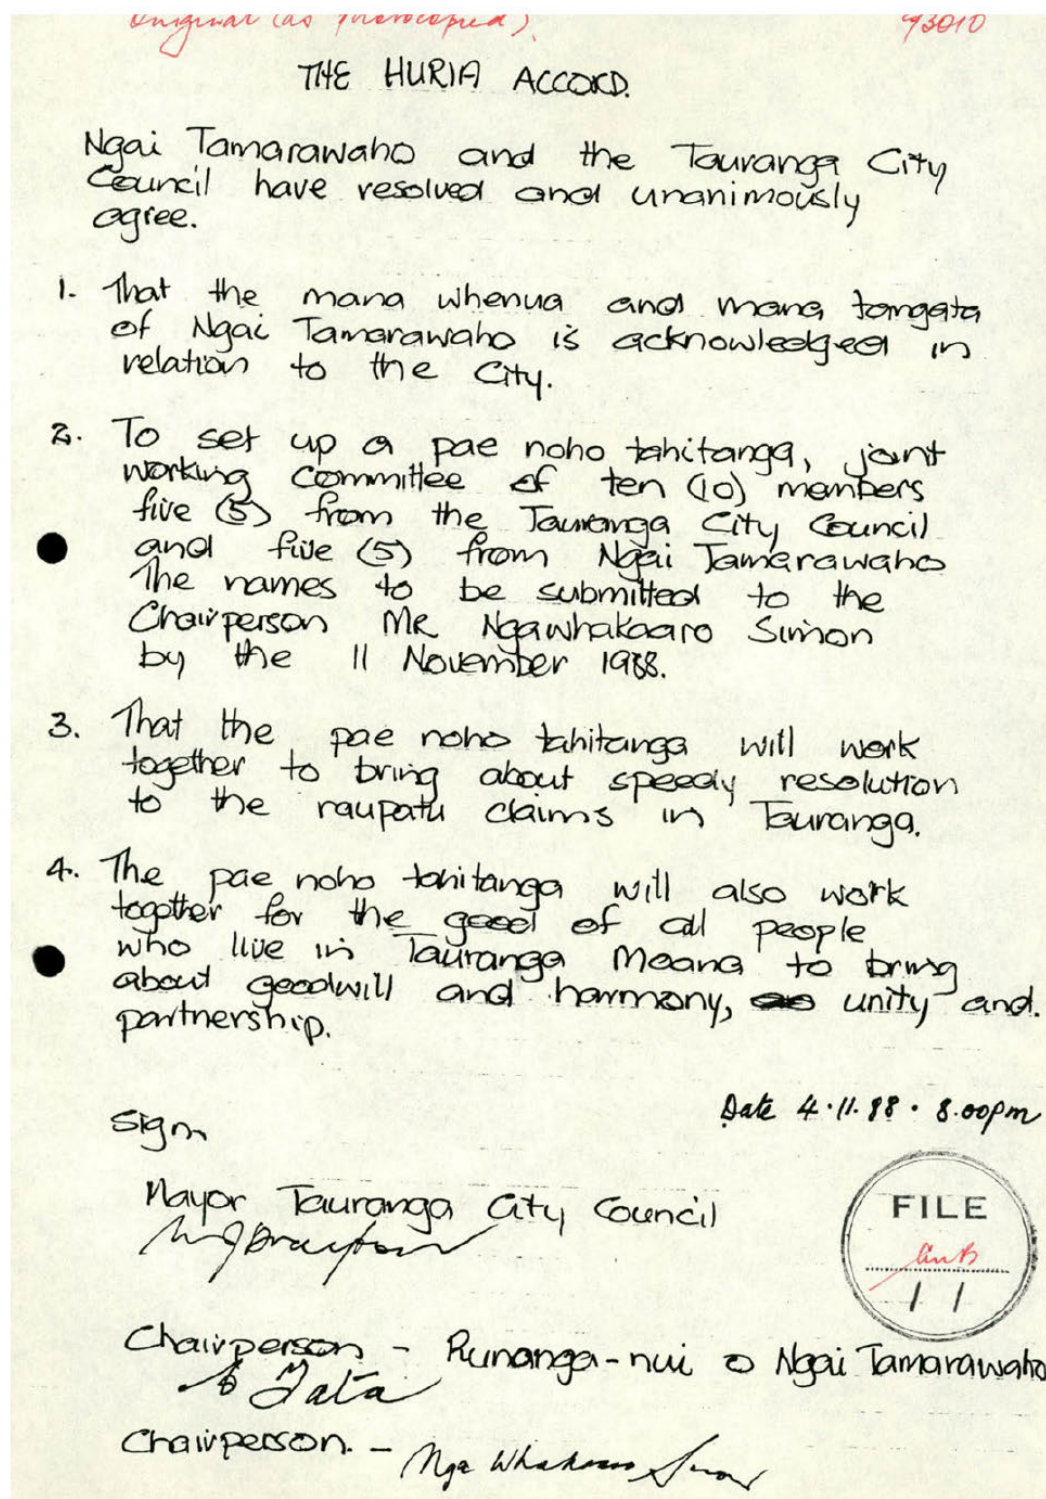 Original (as photocopied)
93010
THE HURIA ACCORD.
Ngai Tamarawaho and the Tauranga City
Council have resolved and unanimously
agree.
1. That the mana whenua and mana tangata
of Ngai Tamarawaho is acknowledged in
relation to the City.
2. To set up a pae noho tahitanga, joint
working committee of ten (10) members
five (5) from the Tauranga City Council
and five (5) from Ngai Tamarawaho
The names to be submitted to the
Chairperson MR Ngawhakaaro Simon
by the 11 November 1988.
3. That the pae noho tahitanga will work
together to bring about speedy resolution
to the raupatu claims in Tauranga.
4. The pae noho tahitanga will also work
together for the good of all people
who live in Tauranga Moana to bring
about goodwill and harmony, unity and.
partnership.
Date 4.11.88 . 8.00pm
Sign
Mayor Tauranga City Council
FILE
/ /
Chairperson - Runanga-nui o Ngai Tamarawaho
Tata
Chairperson. -
Nga Whakaaro Simon